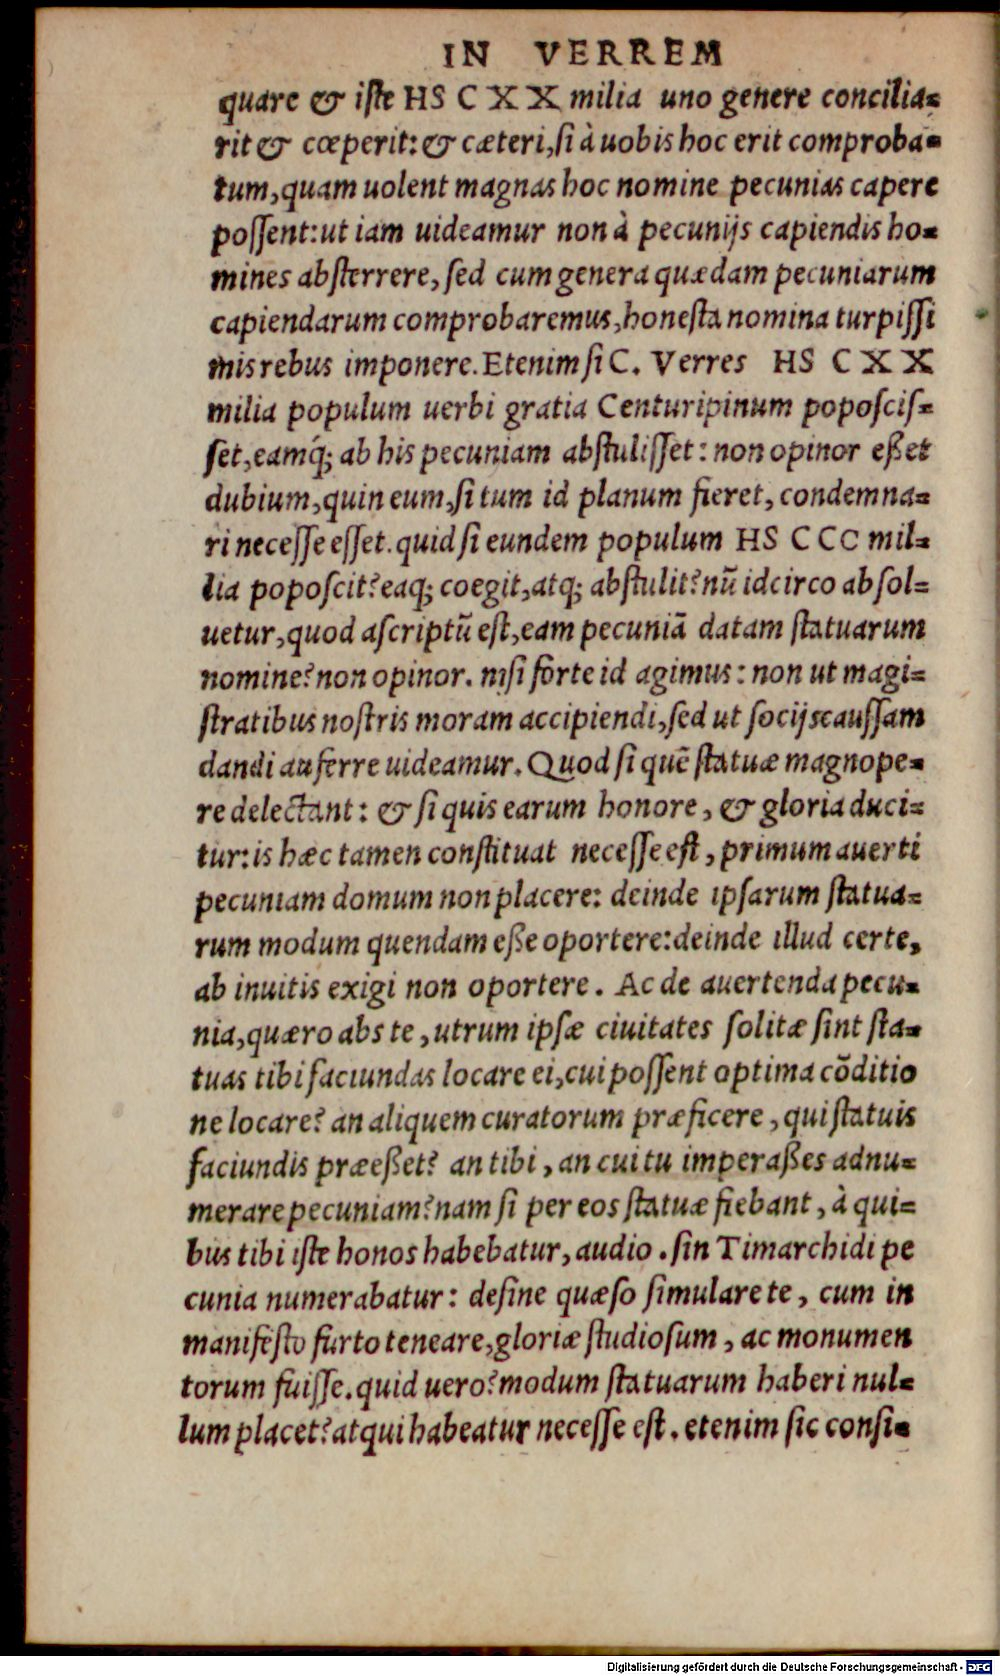 IN VERREM
quare & iſte HS C X X milia uno genere concilia=
rit & cœperit: & cæteri, ſi à uobis hoc erit comproba=
tum, quam uolent magnas hoc nomine pecunias capere
poſſent: ut iam uideamur non à pecunijs capiendis ho=
mines abſterrere, ſed cum genera quædam pecuniarum
capiendarum comprobaremus, honeſta nomina turpiſſi
mis rebus imponere. Etenim ſi C. Verres HS C X X
milia populum uerbi gratia Centuripinum popoſciſ=
ſet, eamq́; ab his pecuniam abſtuliſſet: non opinor eßet
dubium, quin eum, ſi tum id planum fieret, condemna=
ri neceſſe eſſet. quid ſi eundem populum HS C C C mil=
lia popoſcit? eaq; coegit, atq; abſtulit? nū idcirco abſol=
uetur, quod aſcriptū eſt, eam pecuniā datam ſtatuarum
nomine? non opinor. niſi forte id agimus: non ut magi=
ſtratibus noſtris moram accipiendi, ſed ut ſocijs cauſſam
dandi auferre uideamur. Quod ſi quē ſtatuæ magnope=
re delectant: & ſi quis earum honore, & gloria duci=
tur: is hæc tamen conſtituat neceſſe eſt, primum auerti
pecuniam domum non placere: deinde ipſarum ſtatua=
rum modum quendam eße oportere: deinde illud certe,
ab inuitis exigi non oportere. Ac de auertenda pecu=
nia, quæro abs te, utrum ipſæ ciuitates ſolitæ ſint ſta=
tuas tibi faciundas locare ei, cui poſſent optima cōditio
ne locare? an aliquem curatorum præficere, qui ſtatuis
faciundis præeßet? an tibi, an cui tu imperaßes adnu=
merare pecuniam? nam ſi per eos ſtatuæ fiebant, à qui=
bus tibi iſte honos habebatur, audio. ſin Timarchidi pe
cunia numerabatur: deſine quæſo ſimulare te, cum in
manifeſto furto teneare, gloriæ ſtudioſum, ac monumen
torum fuiſſe. quid uero? modum ſtatuarum haberi nul=
lum placet? atqui habeatur neceſſe eſt. etenim ſic conſi=
Digitalisierung gefördert durch die Deutsche Forschungsgemeinschaft - DFG